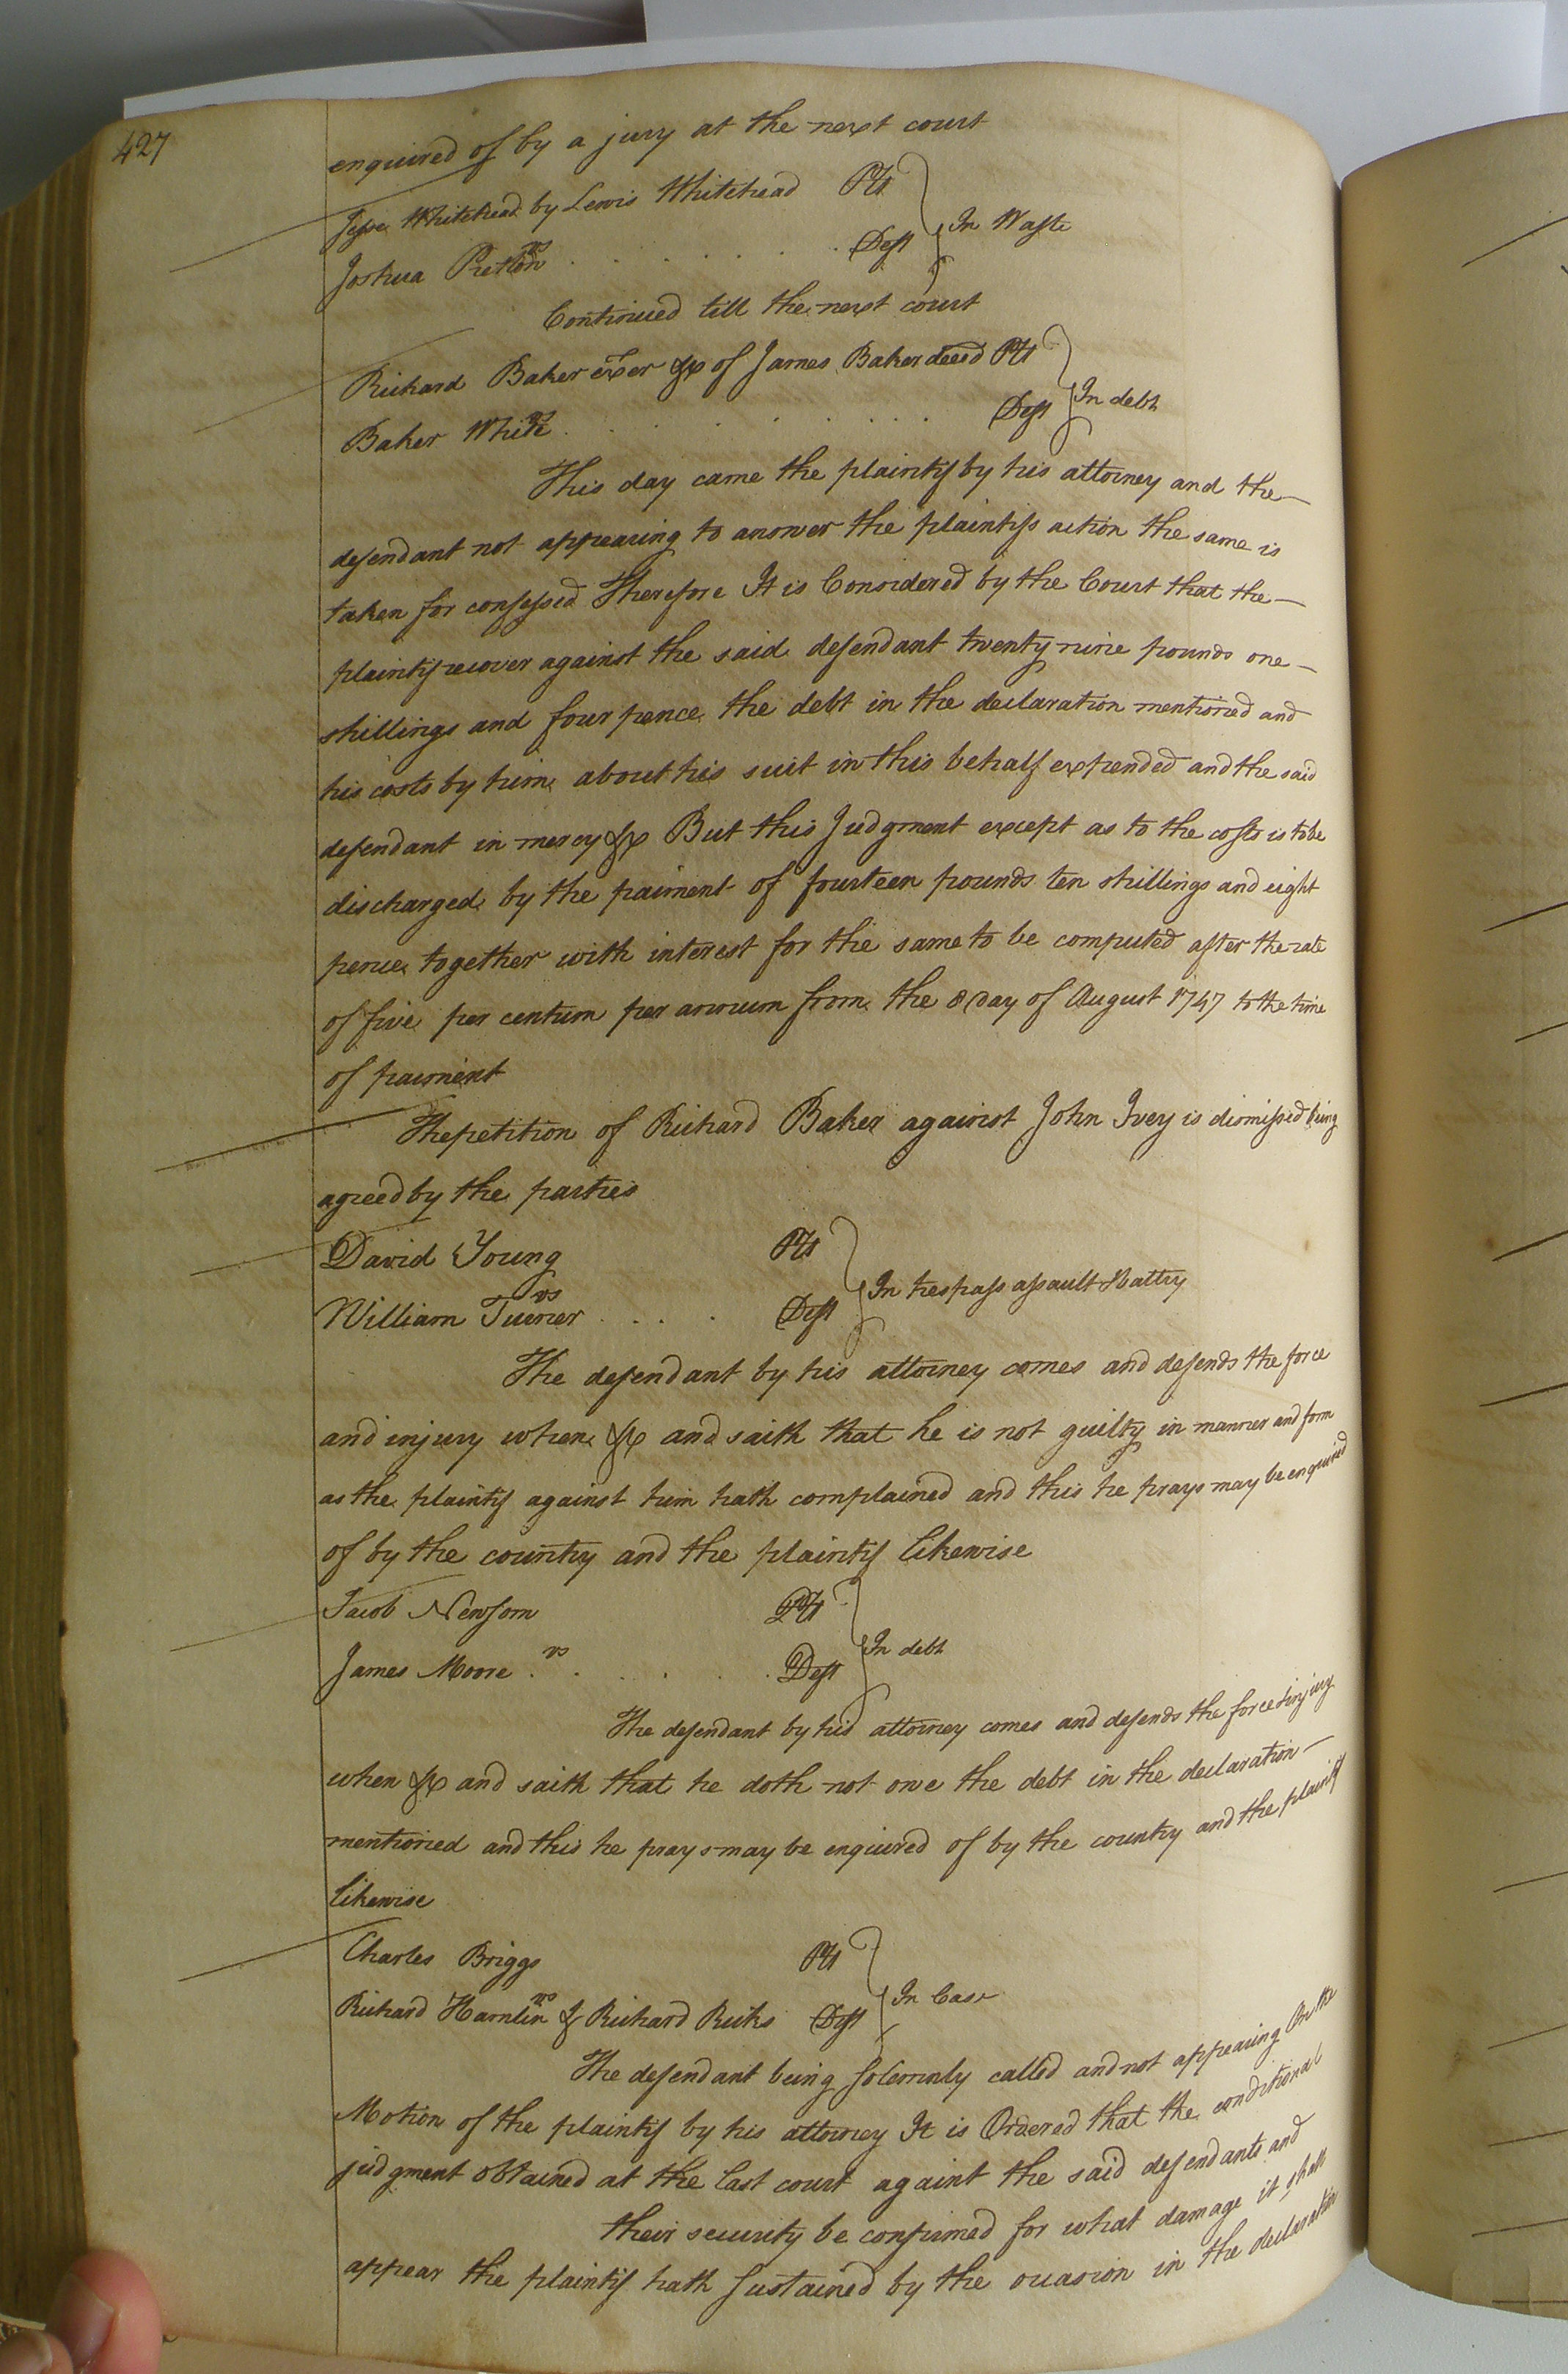 427
enquired of by a jury at the next court
Jesse Whitehead by Lewis Whitehead Plt
vs
In Waste
Joshua Pretlow . . . . . . Deft
Continued till the next court
Richard Baker exer &c of James Baker decd Plt
vs
In debt
Baker White . . . . . . . Deft
This day came the plaintif by his attorney and the
defendant not appearing to answer the plaintifs action the same is
taken for confessed Therefore It is Considered by the Court that the
plaintif recover against the said defendant twenty nine pounds one
shillings and four pence the debt in the declaration mentioned and
his costs by him about his suit in this behalf expended and the said
defendant in mercy &c But this Judgment except as to the costs is to be
discharged by the paiment of fourteen pounds ten shillings and eight
pence together with interest for the same to be computed after the rate
of five per centum per annum from the 8 day of August 1747 to the time
of paiment
The petition of Richard Baker against John Ivey is dismissed being
agreed by the parties
David Young Plt
vs
In trespass assault & Battry
William Turner . . . . Deft
The defendant by his attorney comes and defends the force
and injury when &c and saith that he is not guilty in manner and form
as the plaintif against him hath complained and this he prays may be enquired
of by the country and the plaintif likewise
Jacob Newsom Plt
vs
In debt
James Moore . . . . . . Deft
The defendant by his attorney comes and defends the force & injury
when &c and saith that he doth not owe the debt in the declaration
mentioned and this he prays may be enquired of by the country and the plaintif
likewise
Charles Briggs Plt
vs
In Case
Richard Hamlin & Richard Ricks Deft
The defendant being solemnly called and not appearing On the
Motion of the plaintif by his attorney It is Ordered that the conditional
judgment obtained at the last court againt the said defendants and
their security be confirmed for what damage it shall
appear the plaintif hath sustained by the occasion in the declaration